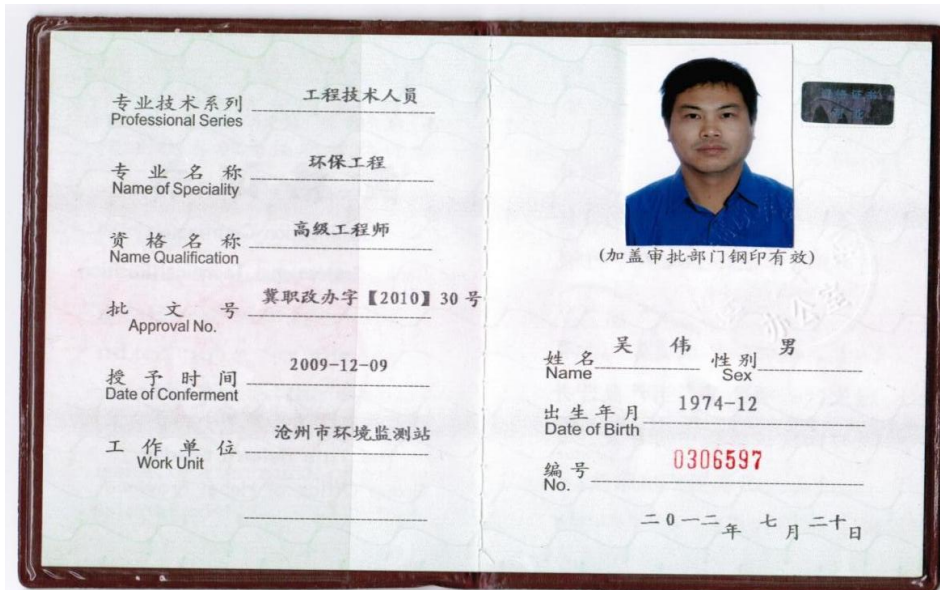 专业技术系列 工程技术人员
Professional Series
专业名称 环保工程
Name of Speciality
资格名称 高级工程师
Name Qualification
批文号 冀职改办字【2010】30号
Approval No.
授予时间 2009-12-09
Date of Conferment
工作单位 沧州市环境监测站
Work Unit
(加盖审批部门钢印有效)
办公室
姓名 吴伟 性别 男
Name Sex
出生年月 1974-12
Date of Birth
编号 0306597
No.
二0一二年 七月 二十日